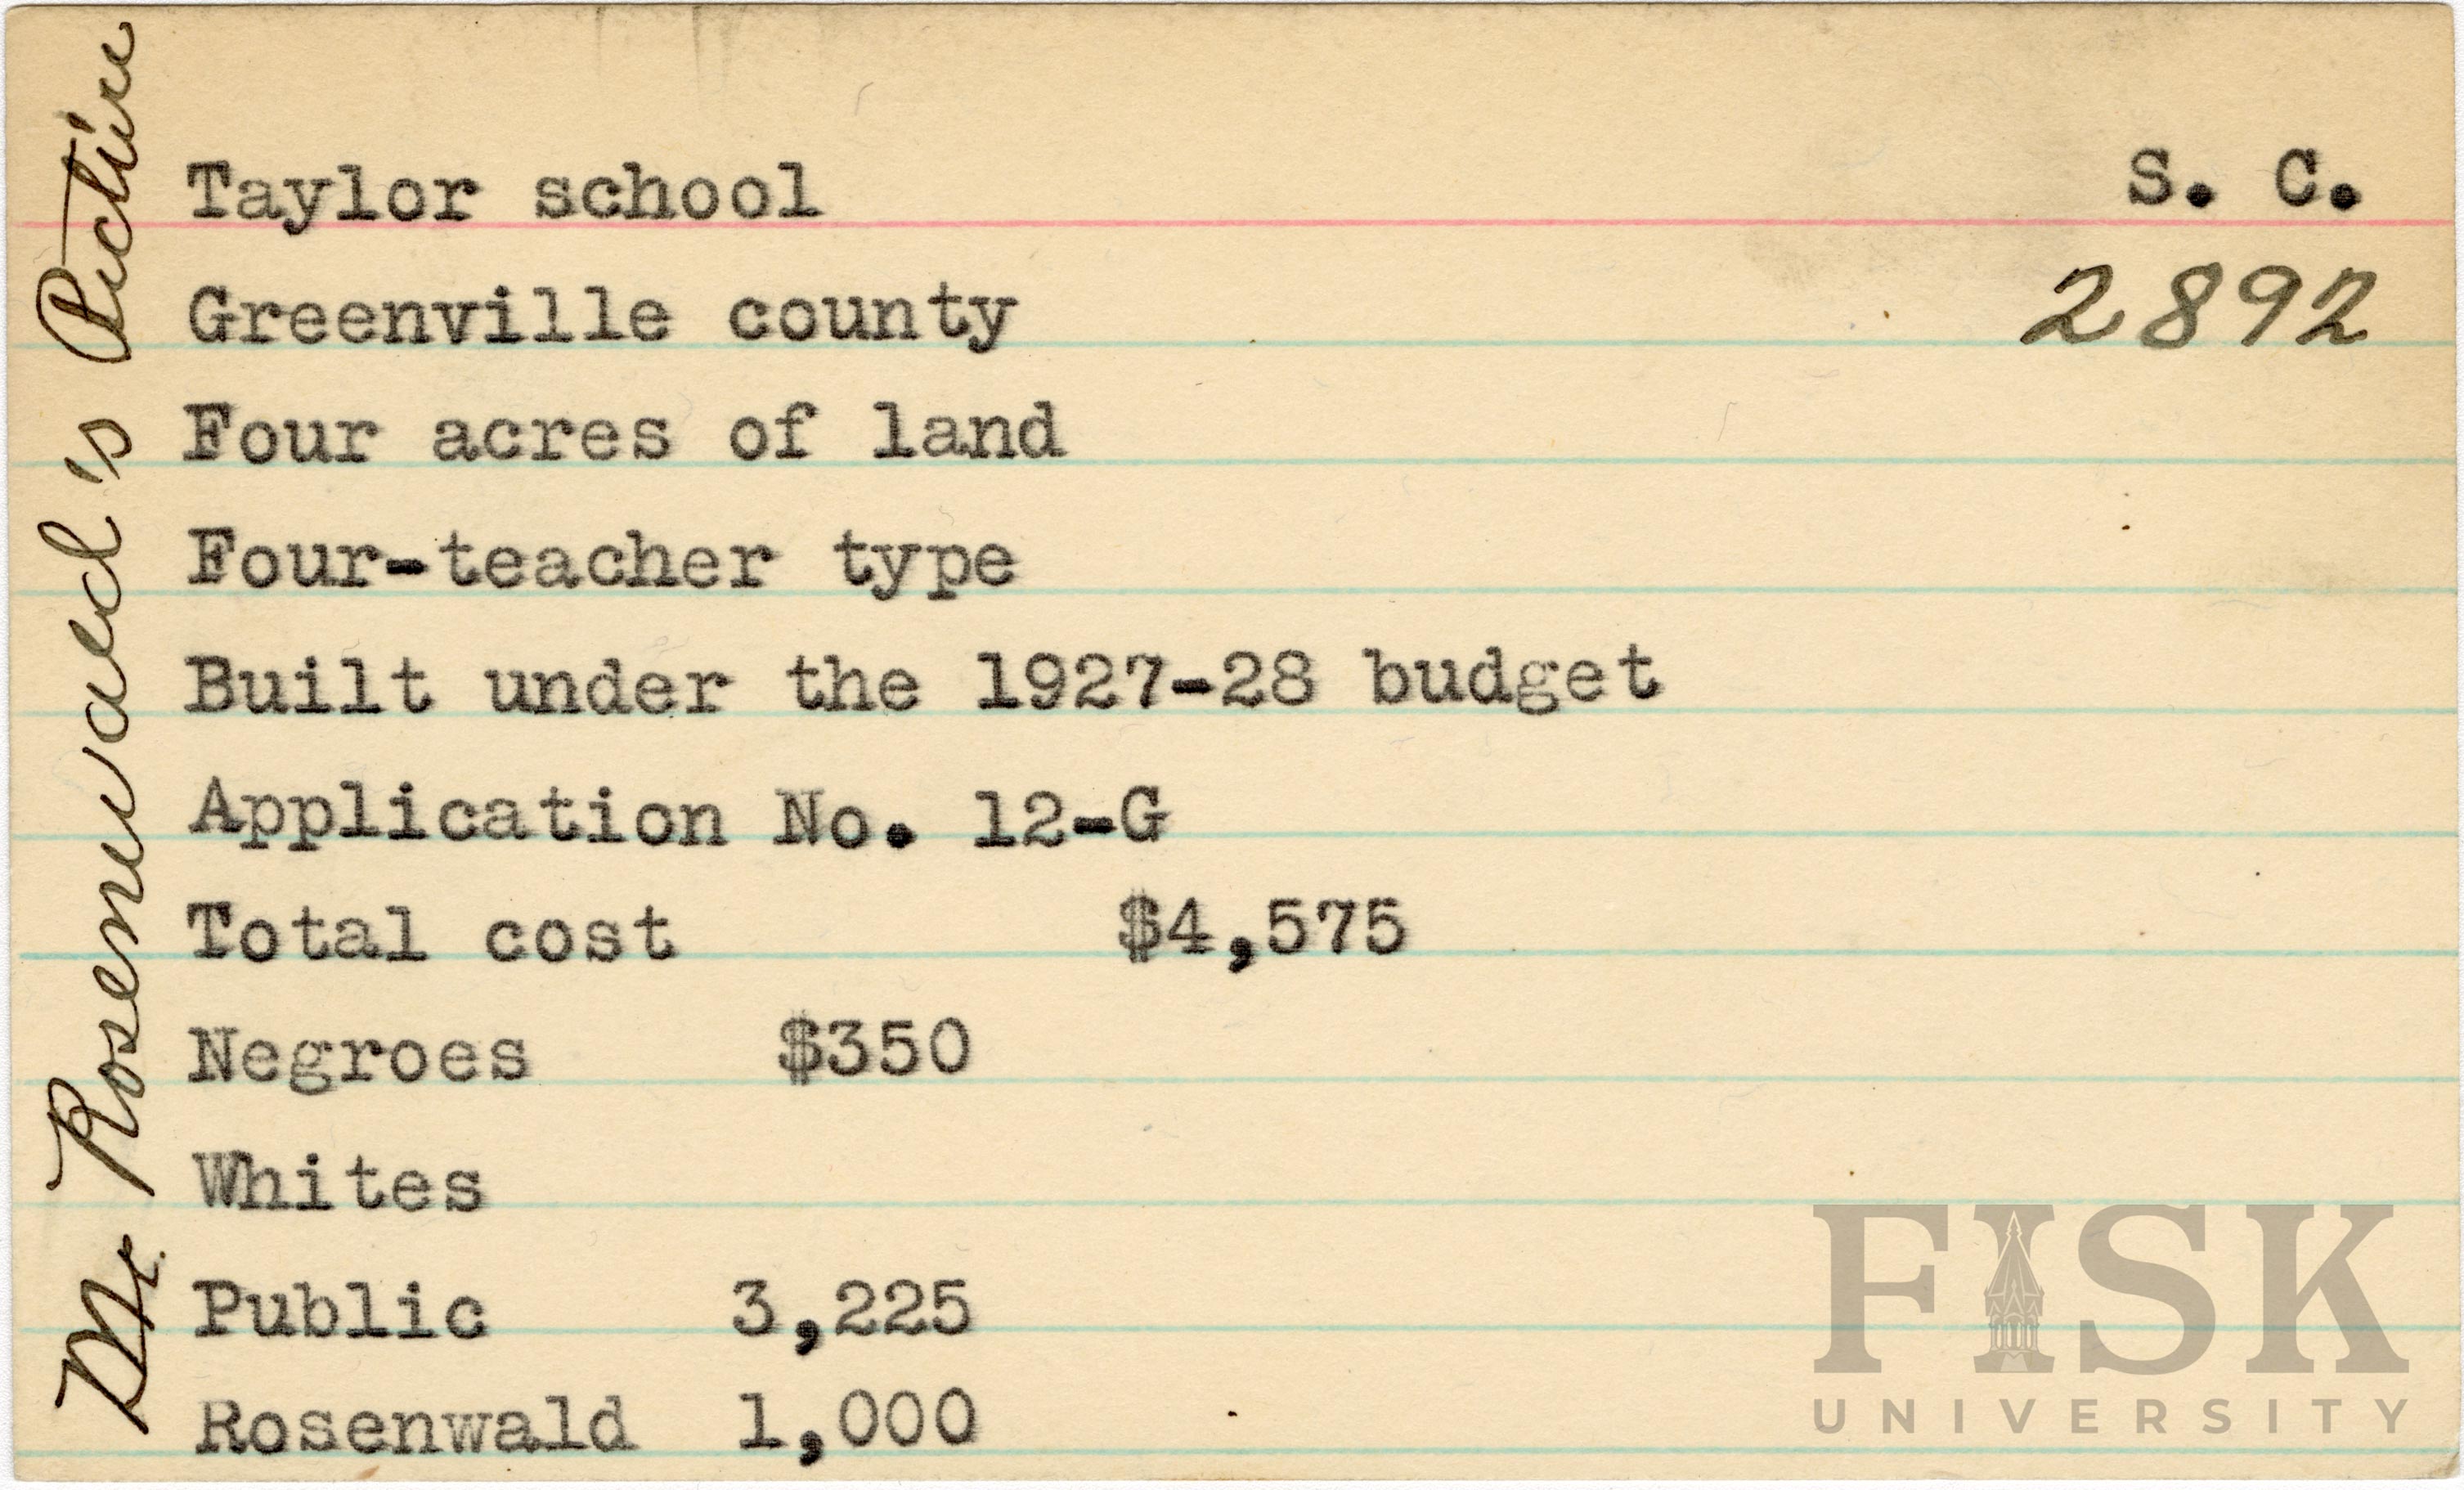 Taylor school S. C.
Greenville county 2892
Four acres of land
Four-teacher type
Built under the 1927-28 budget
Application No. 12-G
Total cost $4,575
Negroes $350
Whites
Public 3,225
Rosenwald 1,000
Mr. Rosenwald's Picture
FISK
UNIVERSITY